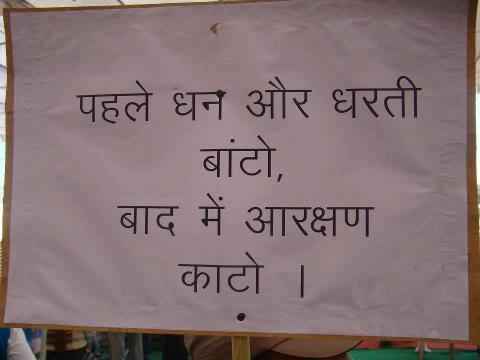 पहले धन और धरती
बांटो,
बाद में आरक्षण
काटो ।